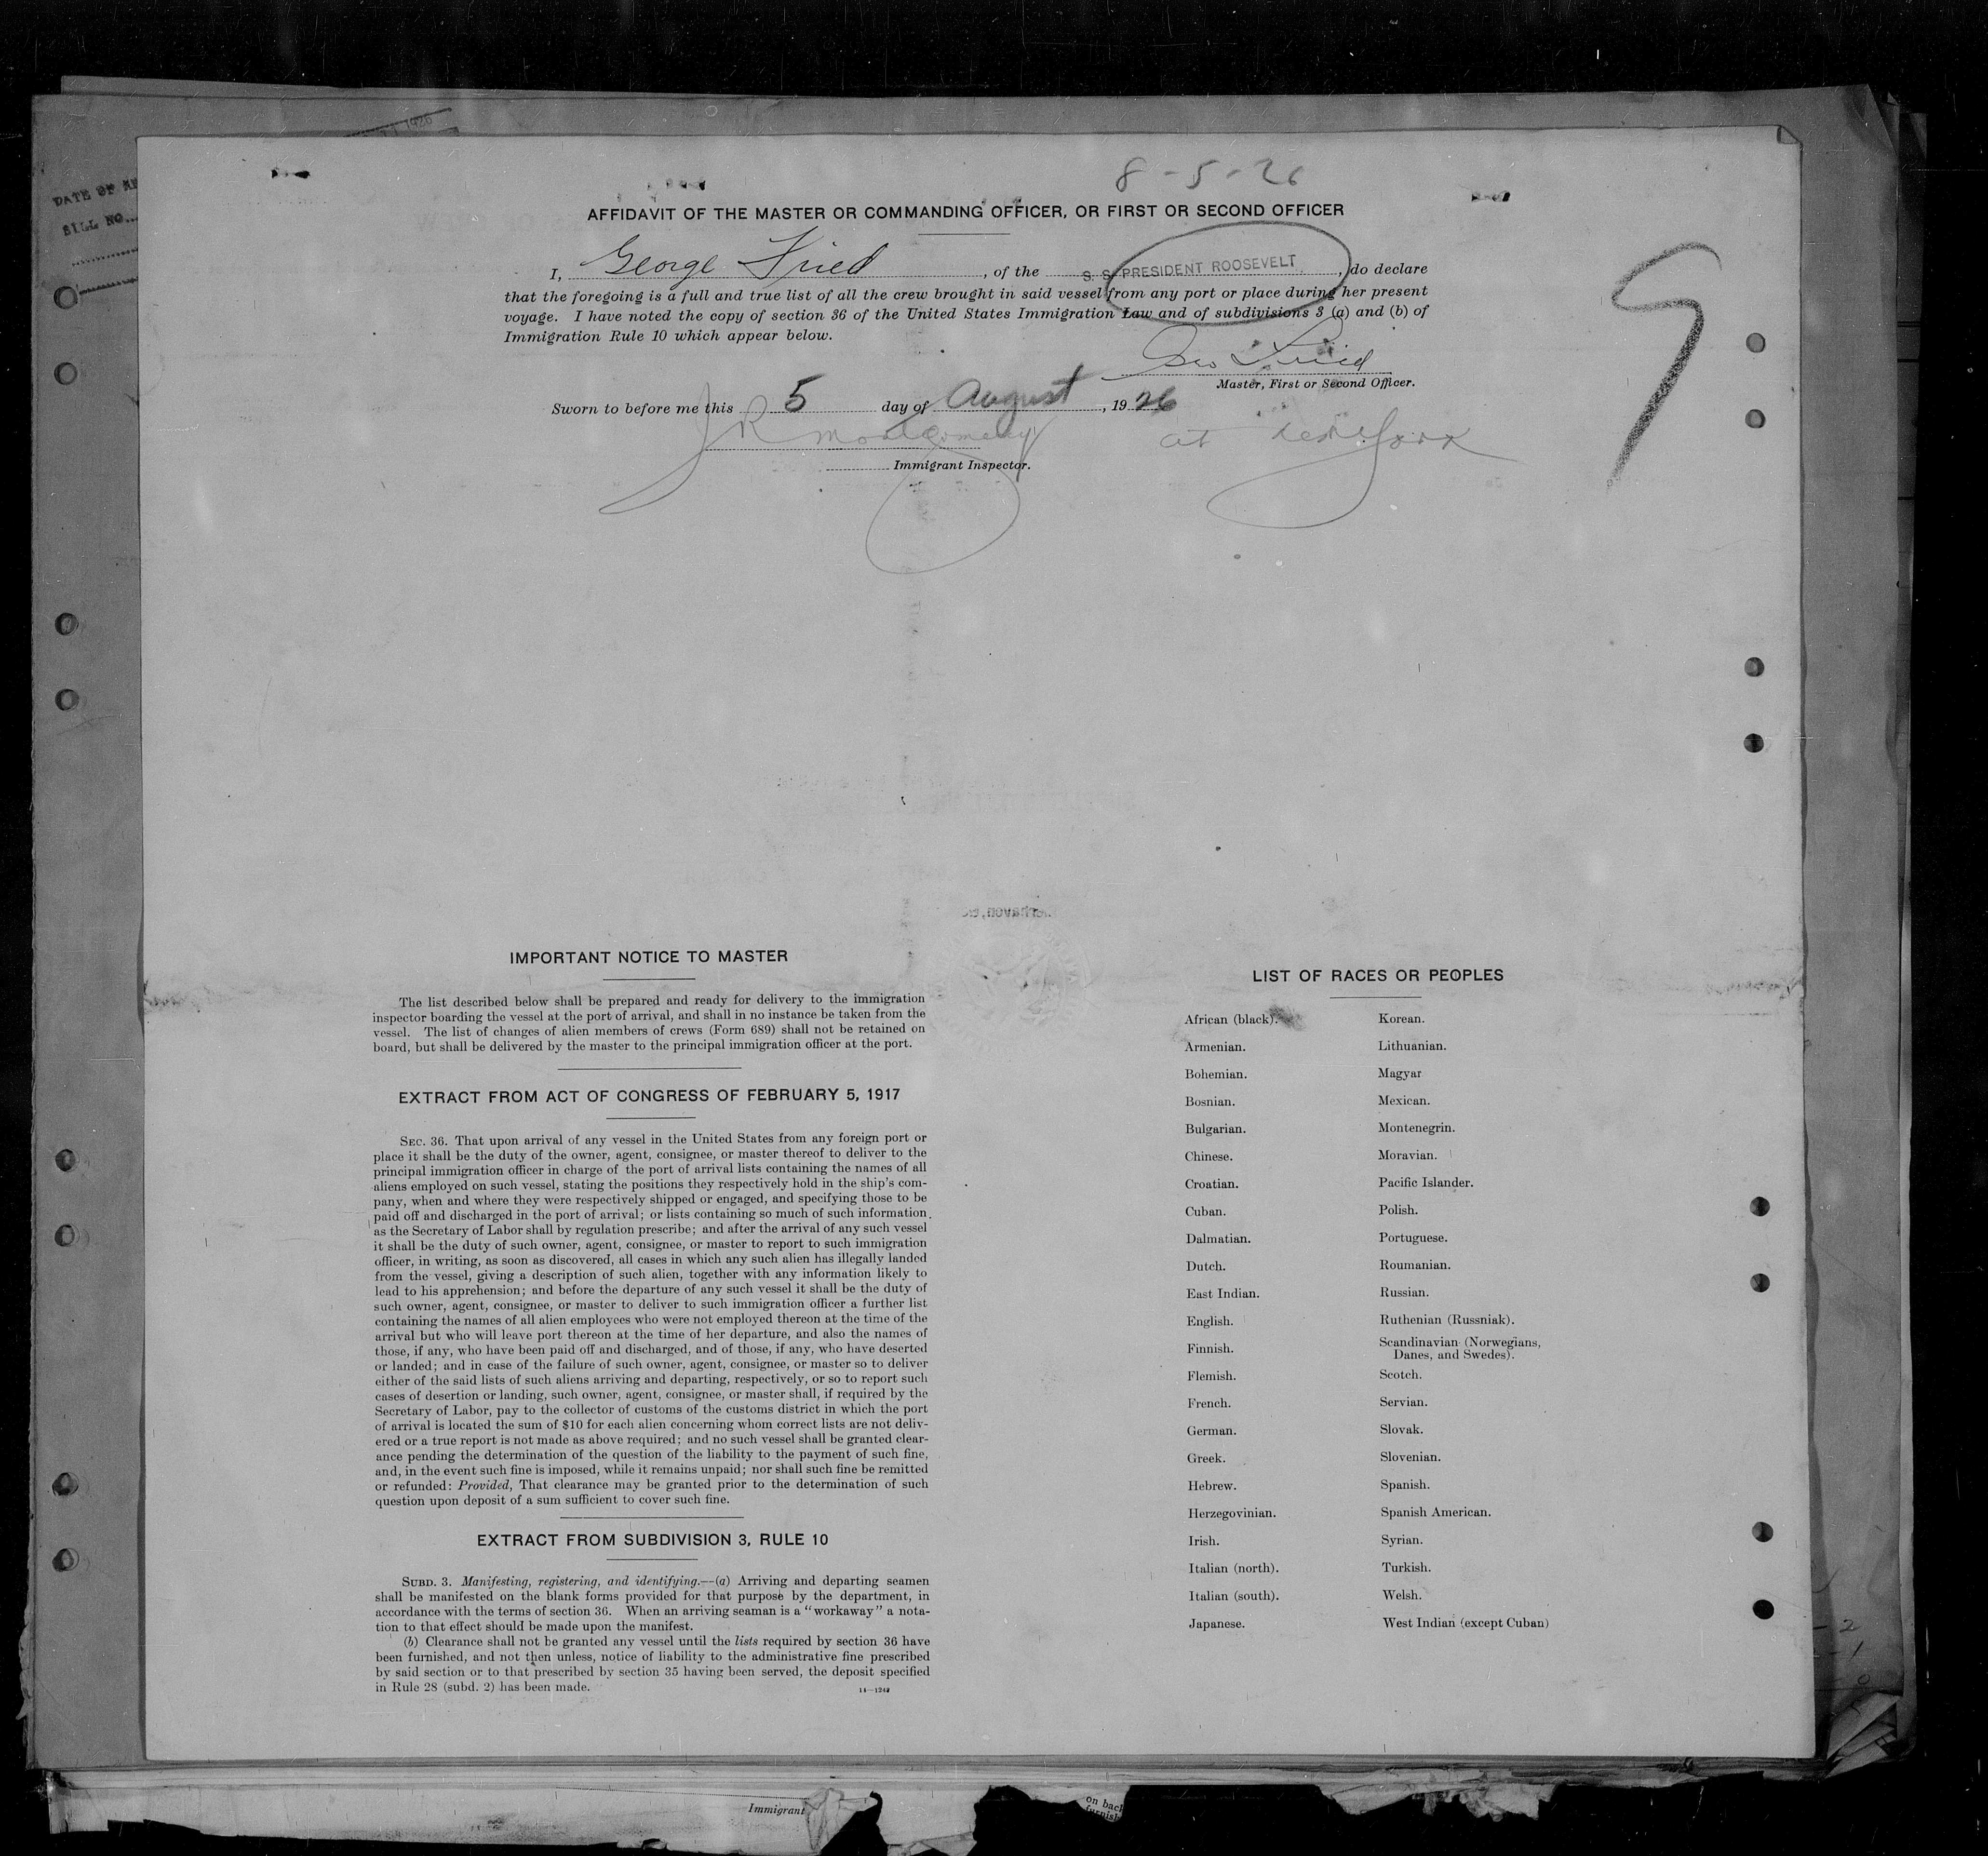 1926
DATE OF
BILL NO.
8-5-26
AFFIDAVIT OF THE MASTER OR COMMANDING OFFICER, OR FIRST OR SECOND OFFICER
I, George Fried, of the S. S. PRESIDENT ROOSEVELT, do declare
that the foregoing is a full and true list of all the crew brought in said vessel from any port or place during her present
voyage. I have noted the copy of section 36 of the United States Immigration Law and of subdivisions 3 (a) and (b) of
Immigration Rule 10 which appear below.
Geo Fried
Master, First or Second Officer.
Sworn to before me this 5 day of August, 1926
J R Montgomery at New York
Immigrant Inspector.
IMPORTANT NOTICE TO MASTER
The list described below shall be prepared and ready for delivery to the immigration
inspector boarding the vessel at the port of arrival, and shall in no instance be taken from the
vessel. The list of changes of alien members of crews (Form 689) shall not be retained on
board, but shall be delivered by the master to the principal immigration officer at the port.
EXTRACT FROM ACT OF CONGRESS OF FEBRUARY 5, 1917
SEC. 36. That upon arrival of any vessel in the United States from any foreign port or
place it shall be the duty of the owner, agent, consignee, or master thereof to deliver to the
principal immigration officer in charge of the port of arrival lists containing the names of all
aliens employed on such vessel, stating the positions they respectively hold in the ship's com-
pany, when and where they were respectively shipped or engaged, and specifying those to be
paid off and discharged in the port of arrival; or lists containing so much of such information
as the Secretary of Labor shall by regulation prescribe; and after the arrival of any such vessel
it shall be the duty of such owner, agent, consignee, or master to report to such immigration
officer, in writing, as soon as discovered, all cases in which any such alien has illegally landed
from the vessel, giving a description of such alien, together with any information likely to
lead to his apprehension; and before the departure of any such vessel it shall be the duty of
such owner, agent, consignee, or master to deliver to such immigration officer a further list
containing the names of all alien employees who were not employed thereon at the time of the
arrival but who will leave port thereon at the time of her departure, and also the names of
those, if any, who have been paid off and discharged, and of those, if any, who have deserted
or landed; and in case of the failure of such owner, agent, consignee, or master so to deliver
either of the said lists of such aliens arriving and departing, respectively, or so to report such
cases of desertion or landing, such owner, agent, consignee, or master shall, if required by the
Secretary of Labor, pay to the collector of customs of the customs district in which the port
of arrival is located the sum of $10 for each alien concerning whom correct lists are not deliv-
ered or a true report is not made as above required; and no such vessel shall be granted clear-
ance pending the determination of the question of the liability to the payment of such fine,
and, in the event such fine is imposed, while it remains unpaid; nor shall such fine be remitted
or refunded: Provided, That clearance may be granted prior to the determination of such
question upon deposit of a sum sufficient to cover such fine.
EXTRACT FROM SUBDIVISION 3, RULE 10
SUBD. 3. Manifesting, registering, and identifying.—(a) Arriving and departing seamen
shall be manifested on the blank forms provided for that purpose by the department, in
accordance with the terms of section 36. When an arriving seaman is a "workaway" a nota-
tion to that effect should be made upon the manifest.
(b) Clearance shall not be granted any vessel until the lists required by section 36 have
been furnished, and not then unless, notice of liability to the administrative fine prescribed
by said section or to that prescribed by section 35 having been served, the deposit specified
in Rule 28 (subd. 2) has been made.
LIST OF RACES OR PEOPLES
African (black).
Armenian.
Bohemian.
Bosnian.
Bulgarian.
Chinese.
Croatian.
Cuban.
Dalmatian.
Dutch.
East Indian.
English.
Finnish.
Flemish.
French.
German.
Greek.
Hebrew.
Herzegovinian.
Irish.
Italian (north).
Italian (south).
Japanese.
Korean.
Lithuanian.
Magyar
Mexican.
Montenegrin.
Moravian.
Pacific Islander.
Polish.
Portuguese.
Roumanian.
Russian.
Ruthenian (Russniak).
Scandinavian (Norwegians,
Danes, and Swedes).
Scotch.
Servian.
Slovak.
Slovenian.
Spanish.
Spanish American.
Syrian.
Turkish.
Welsh.
West Indian (except Cuban)
Immigrant
on back
furnish